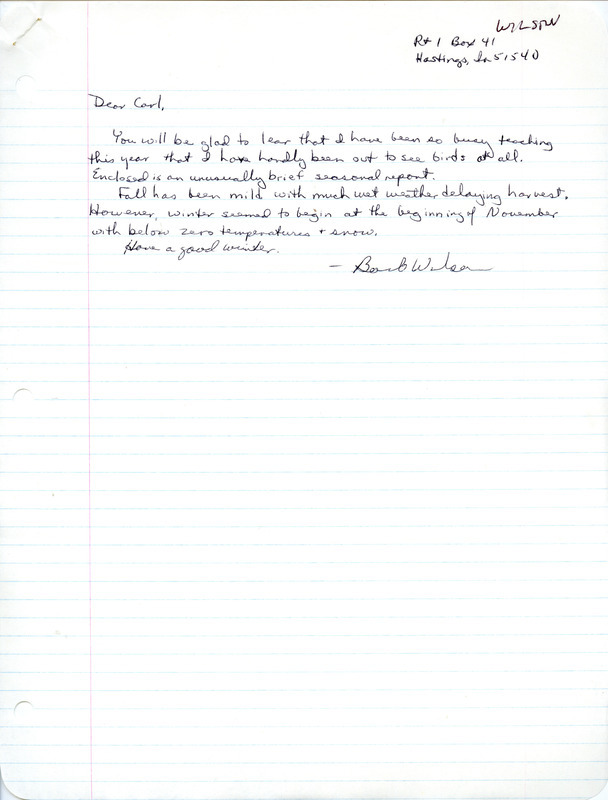 WILSON
Rt 1 Box 41
Hastings, Ia 51540
Dear Carl,
You will be glad to lear that I have been so busy teaching
this year that I have hardly been out to see birds at all.
Enclosed is an unusually brief seasonal report.
Fall has been mild with much wet weather delaying harvest.
However, winter seemed to begin at the beginning of November
with below zero temperatures + snow.
Have a good winter.
— Barb Wilson